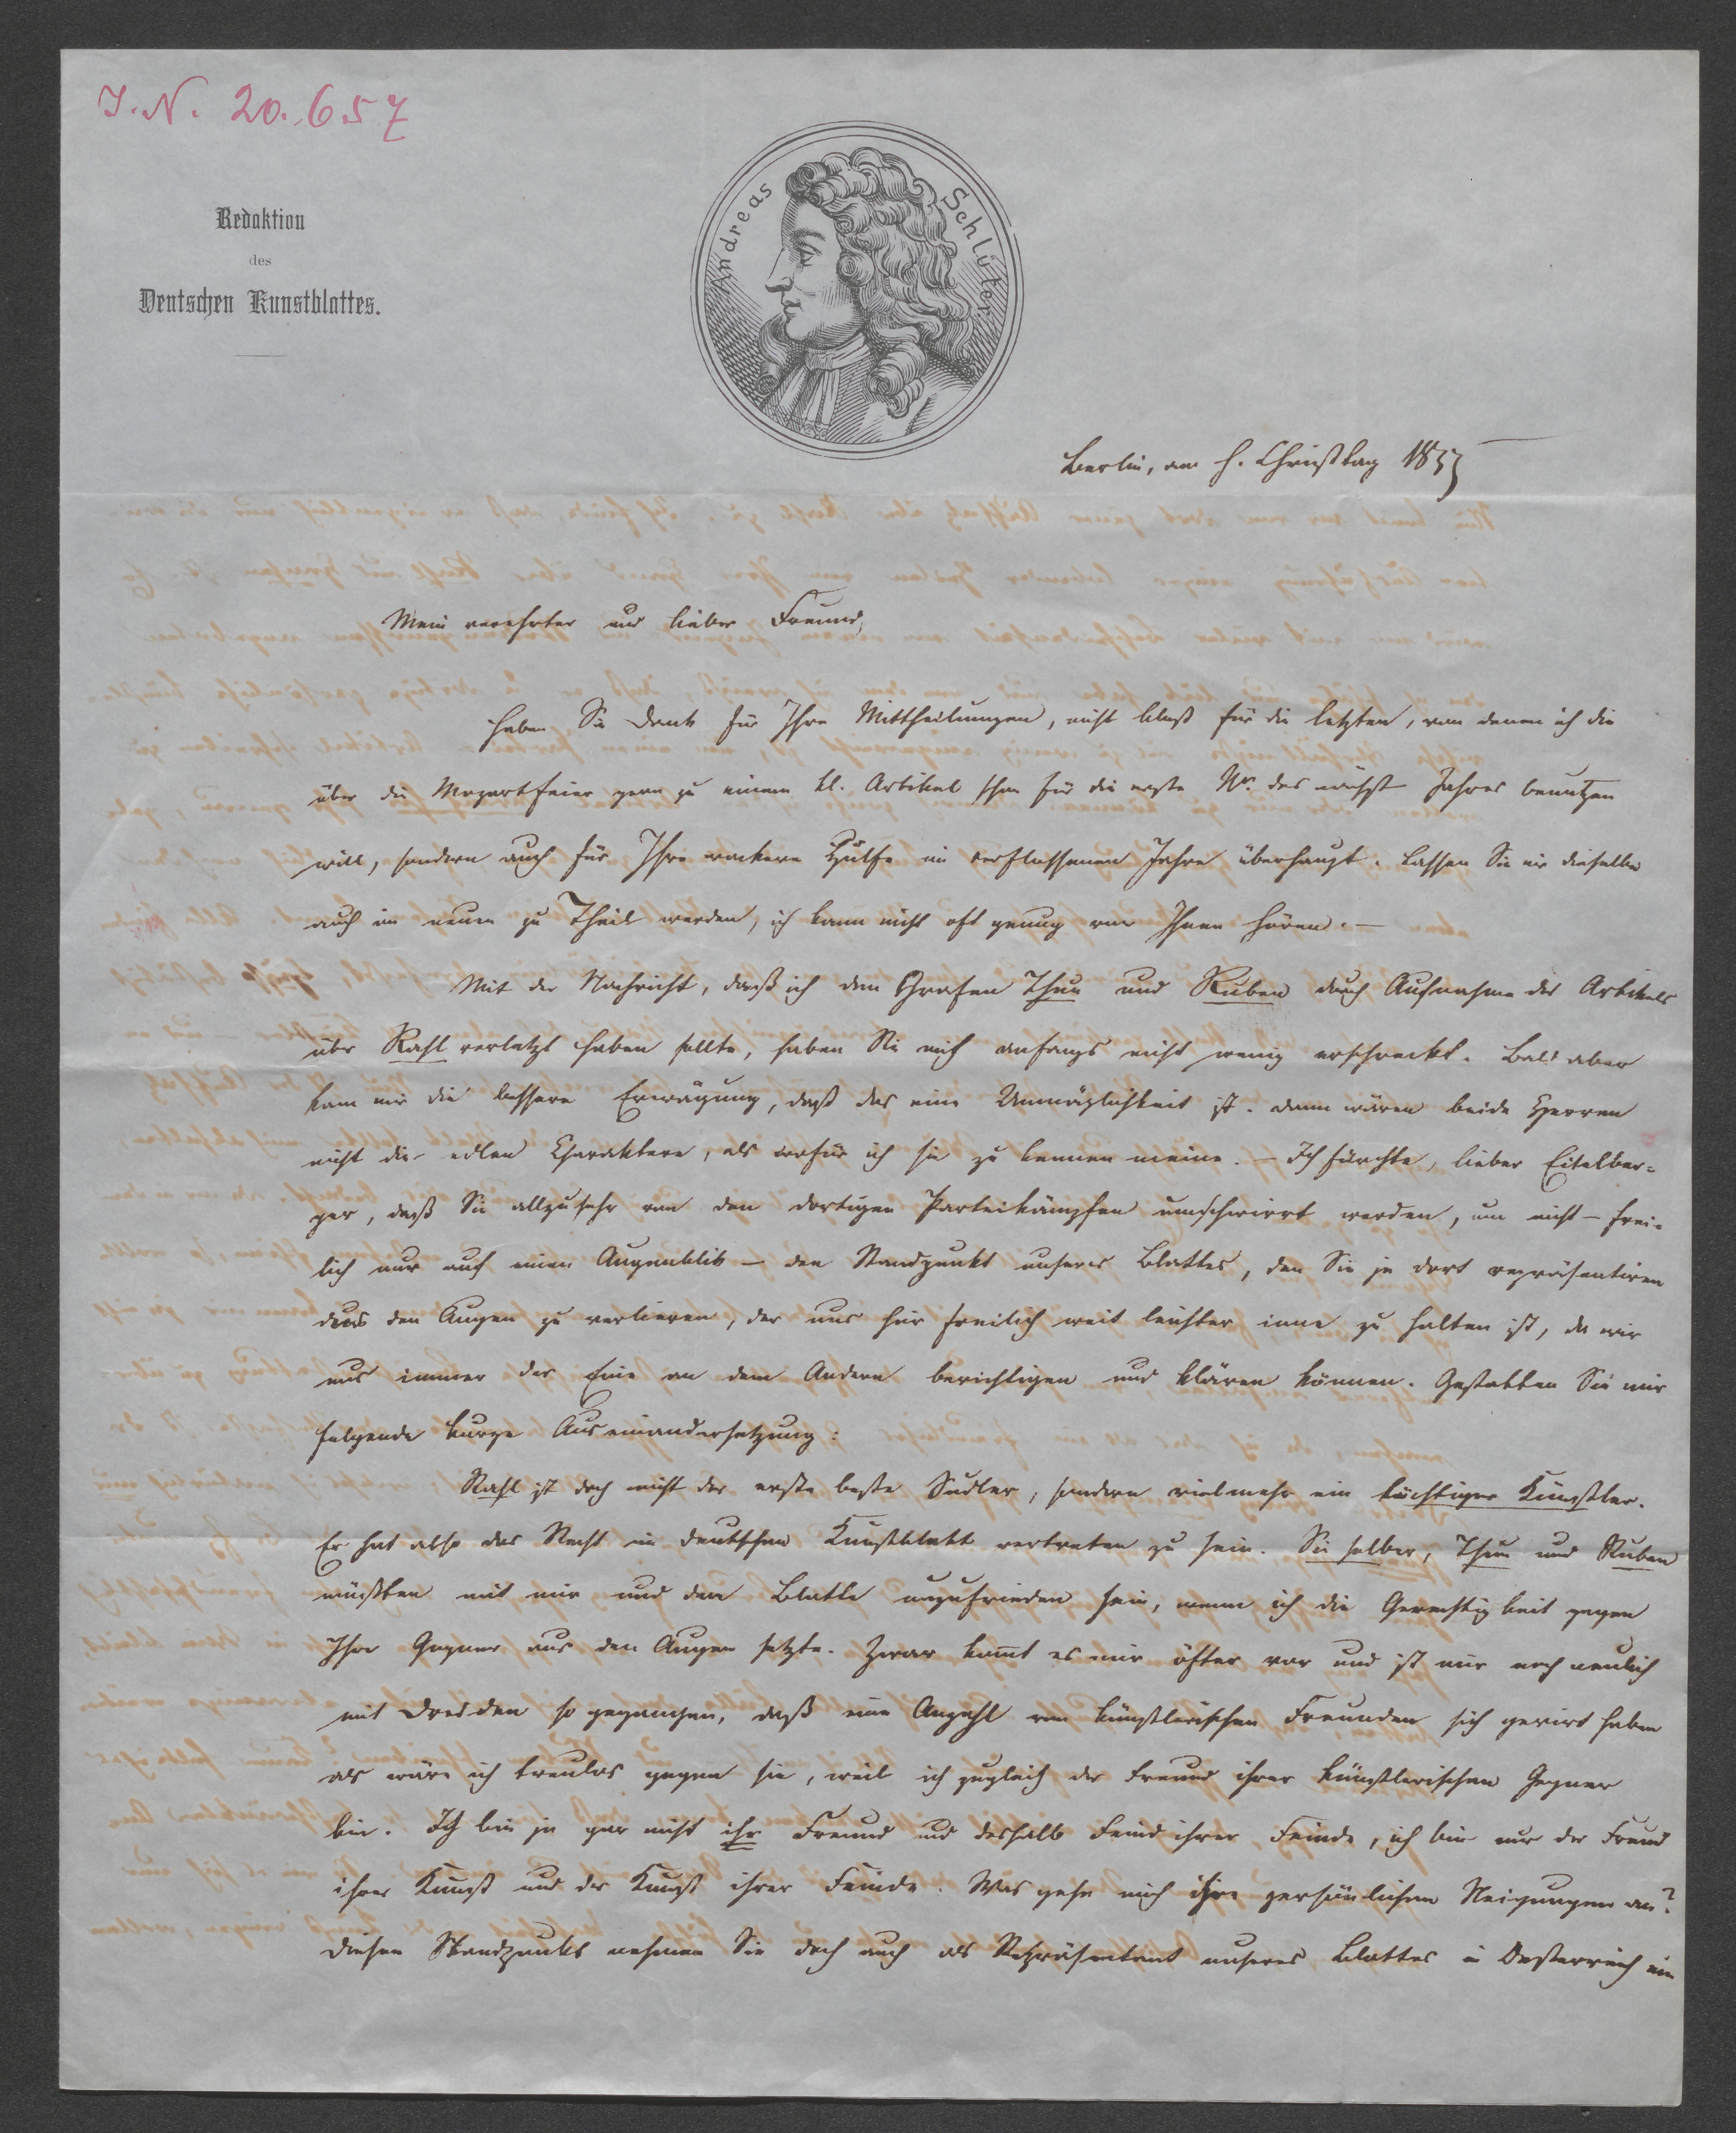 J. N. 20.657
Redaktion
des
Deutschen Kunstblattes.
Andreas Schlüter
Berlin, am h. Christtag 1855
Mein verehrter und lieber Freund,
Haben Sie Dank für Ihre Mittheilungen, nicht bloß für die letzten, von denen ich die
über die Mozartfeier gern zu einem kl. Artikel schon für die erste Nr. des nächst Jahres benutzen
will, sondern auch für Ihre wackere Hülfe im verflossenen Jahre überhaupt. Lassen Sie mir dieselbe
auch im neuen zu Theil werden, ich kann nicht oft genug von Ihnen hören. —
Mit der Nachricht, daß ich den Grafen Thun und Ruben durch Aufnahme des Artikels
über Rahl verletzt haben sollte, haben Sie mich anfangs nicht wenig erschreckt. Bald aber
kam mir die bessere Erwägung, daß das eine Unmöglichkeit ist. Denn wären beide Herren
nicht die edlen Charaktere, als wofür ich sie zu kennen meine. — Ich fürchte, lieber Eitelber=
ger, daß Sie allzusehr von den dortigen Parteikämpfen umschwirrt werden, um nicht – frei=
lich nur auf einen Augenblick – den Standpunkt unseres Blattes, den Sie ja dort repräsentiren
aus den Augen zu verlieren, der uns hier freilich weit leichter inne zu halten ist, da wir
uns immer der Eine an dem Andern berichtigen und klären können. Gestatten Sie mir
folgende kurze Auseinandersetzung:
Rahl ist doch nicht der erste beste Sudler, sondern vielmehr ein tüchtiger Künstler.
Er hat also das Recht im deutschen Kunstblatt vertreten zu sein. Sie selber, Thun und Ruben
müßten mit mir und dem Blatte unzufrieden sein, wenn ich die Gerechtigkeit gegen
Ihre Gegner aus den Augen setzte. Zwar komt es mir öfter vor und ist mir noch neulich
mit Dresden so gegangen, daß eine Anzahl von künstlerischen Freunden sich gerirt haben
als wäre ich treulos gegen sie, weil ich zugleich der Freund ihrer künstlerischen Gegner
bin. Ich bin ja gar nicht ihr Freund und deshalb Feind ihrer Feinde, ich bin nur der Freund
ihrer Kunst und der Kunst ihrer Feinde. Was gehn mich ihre persönlichen Neigungen an?
Diesen Standpunkt nehmen Sie doch auch als Repräsentant unseres Blattes in Oesterreich ein